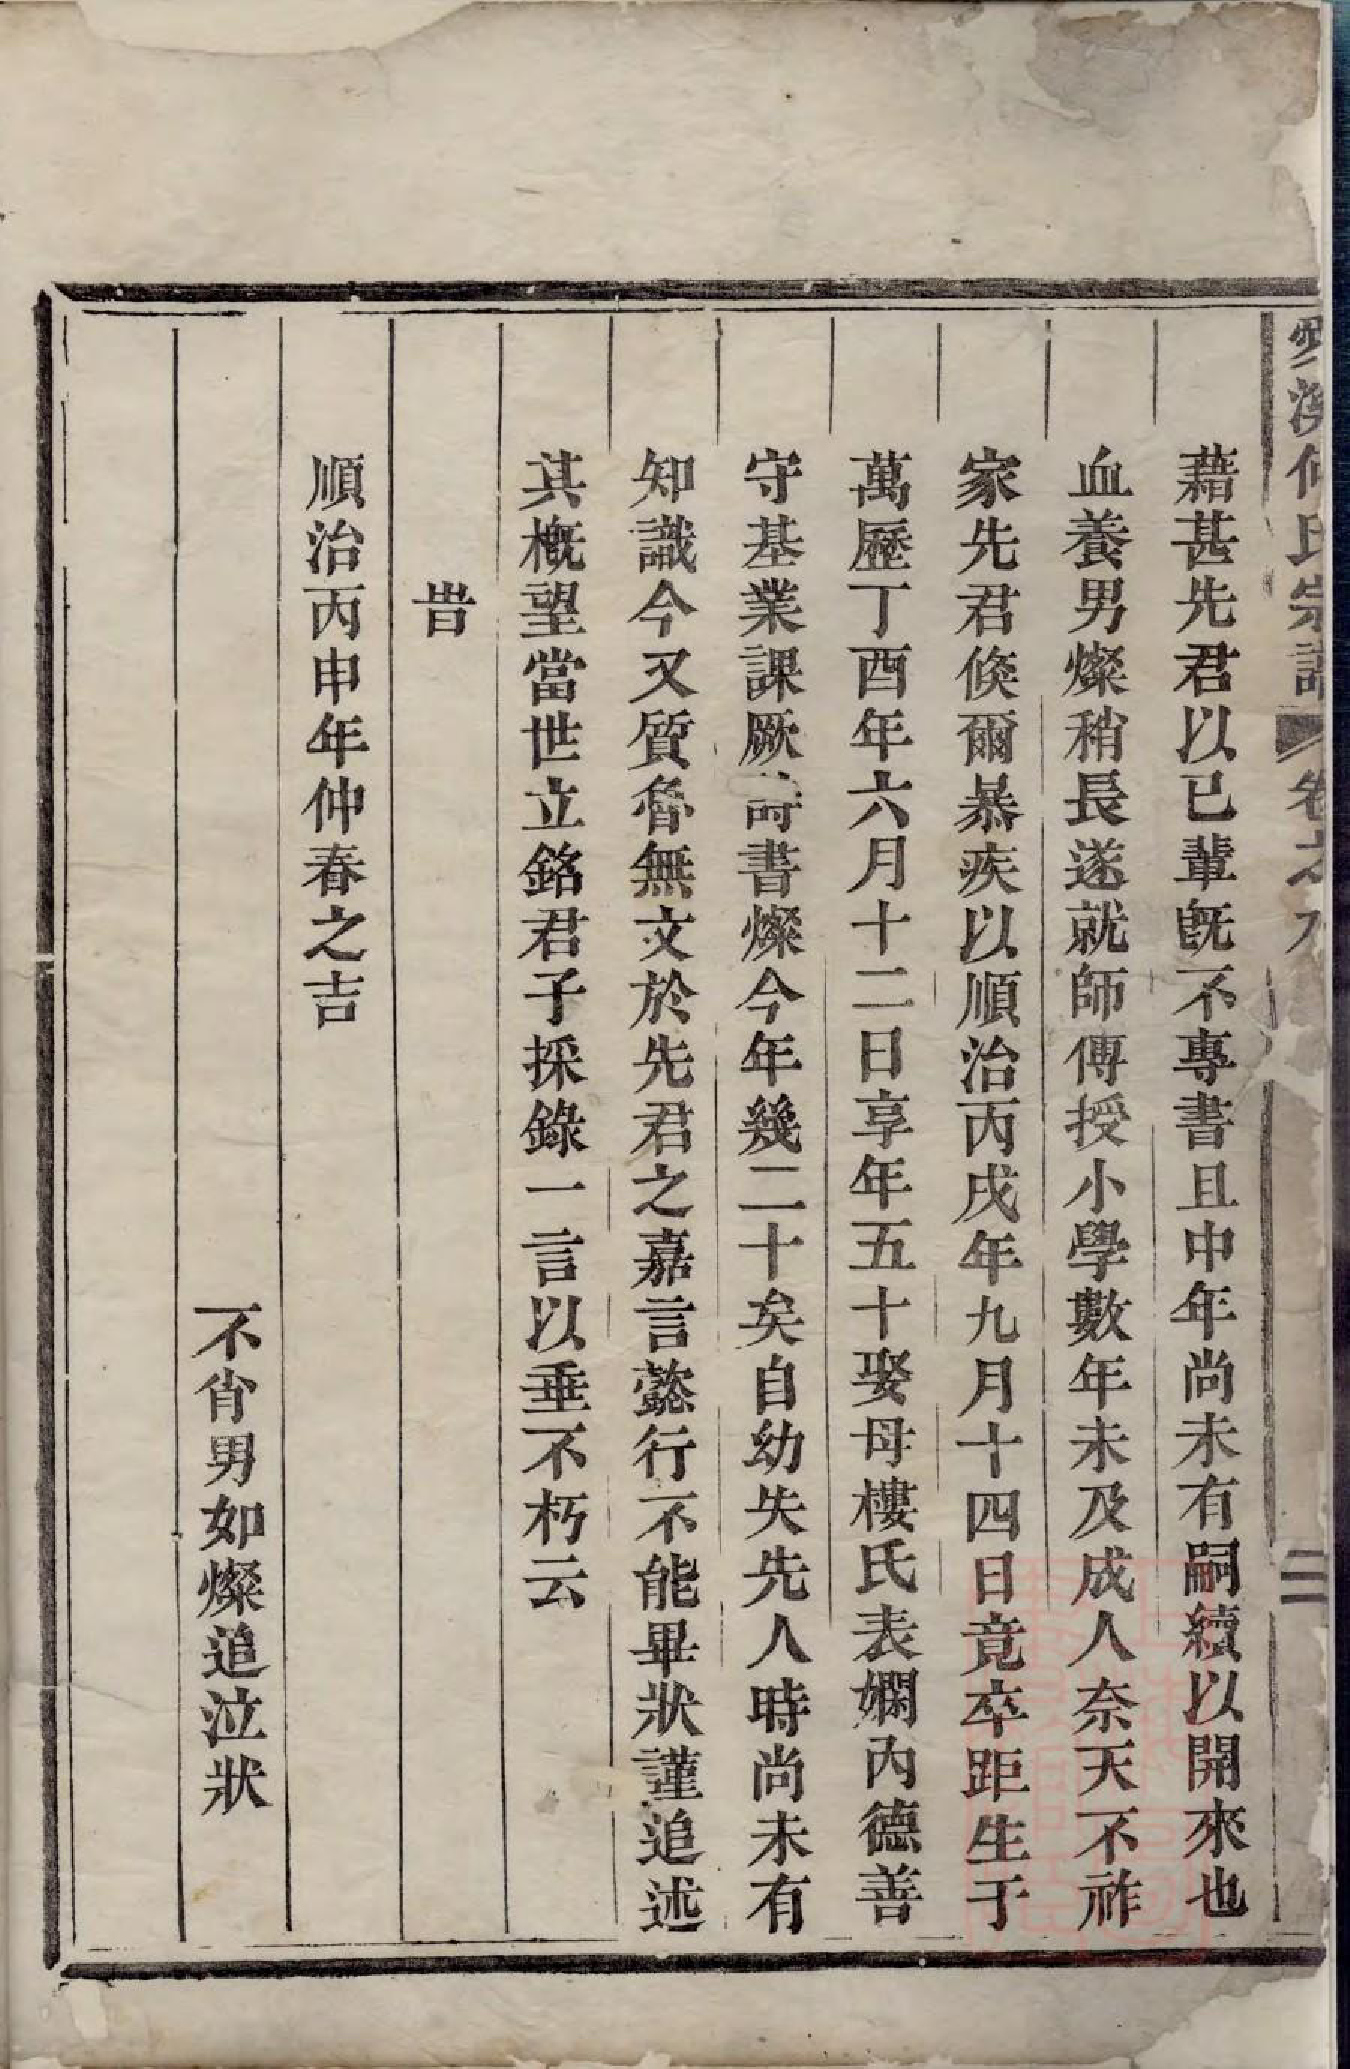 溪何氏宗譜 卷之 二
藉甚先君以已輩旣不專書且中年尚未有嗣續以開來也
血養男燦稍長遂就師傅授小學數年未及成人奈天不祚
家先君倏爾暴疾以順治丙戌年九月十四日竟卒距生于
萬歷丁酉年六月十二日享年五十娶母樓氏表嫻內德善
守基業課厥詩書燦今年幾二十矣自幼失先人時尚未有
知識今又質魯無文於先君之嘉言懿行不能畢狀謹追述
其槪望當世立銘君子採錄一言以垂不朽云
旹
順治丙申年仲春之吉
不肖男如燦追泣狀